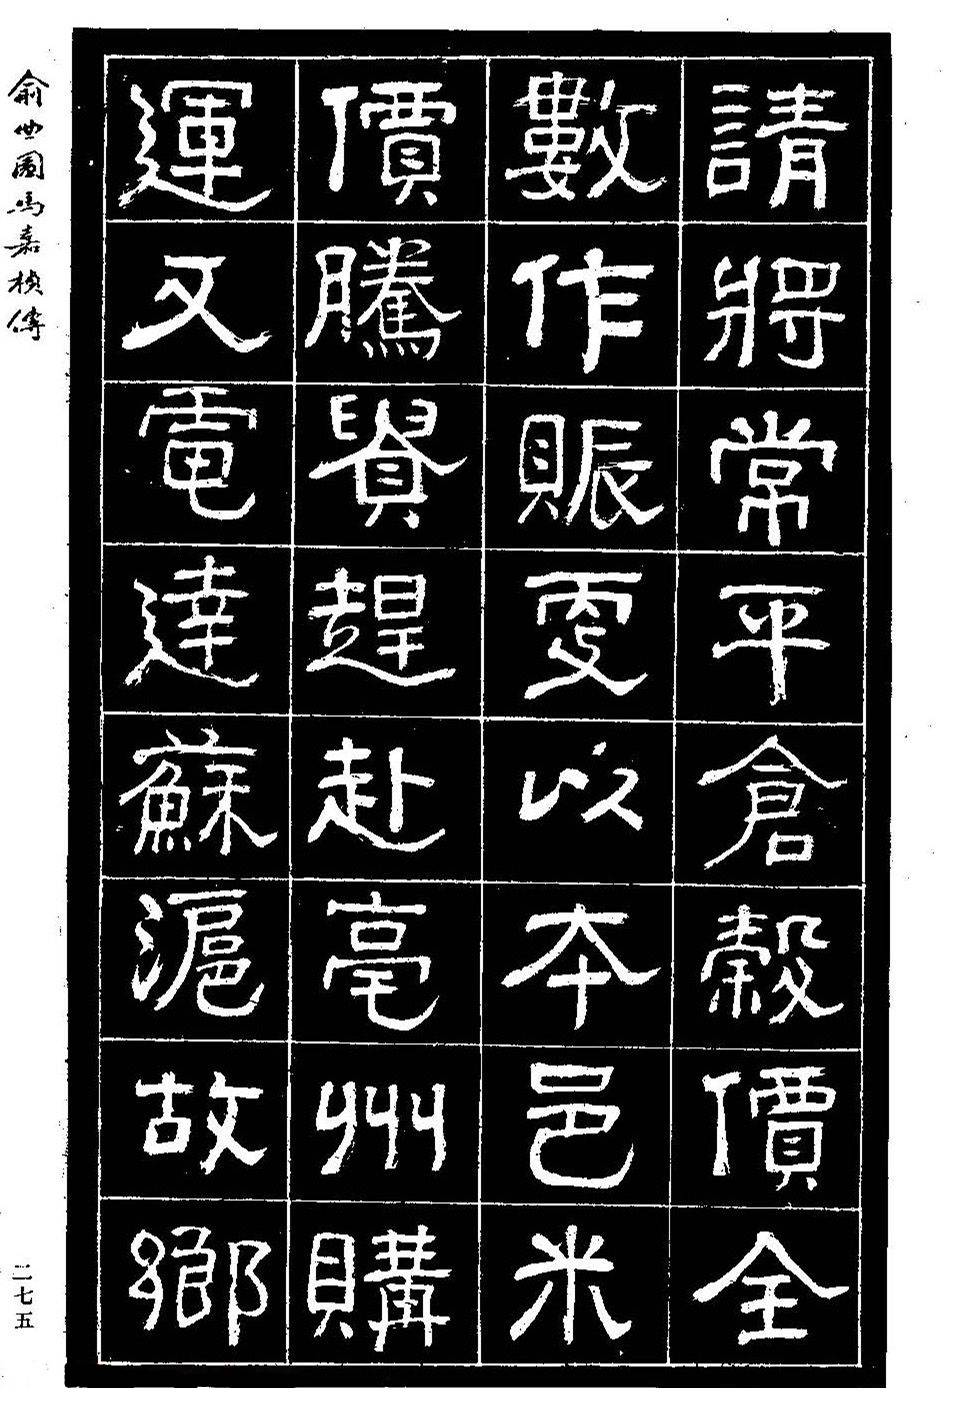 請將常平倉穀價全
數作賑更以本邑米
價騰貴趕赴亳州購
運又電達蘇滬故鄉
馬嘉楨傳
二七五